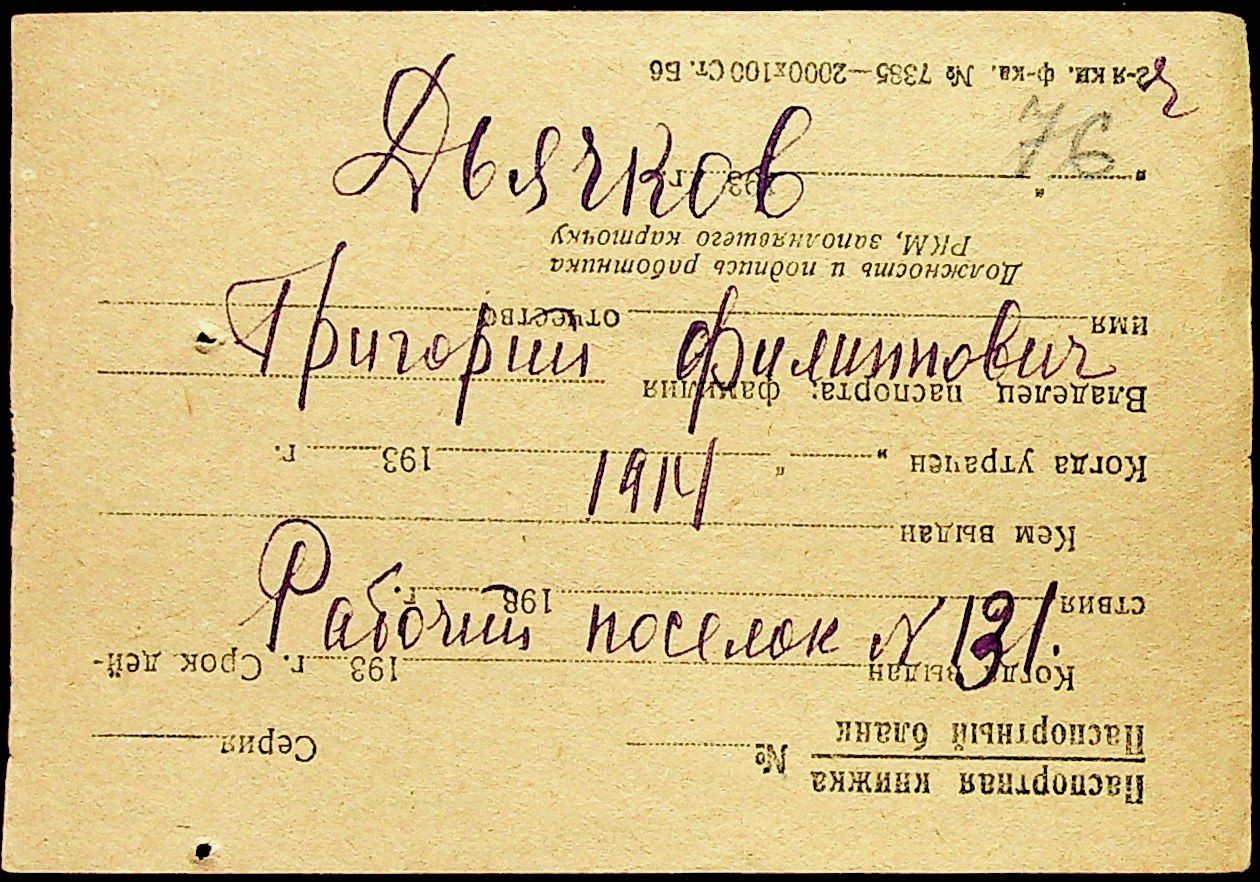 Дьячков
Григорий Филиппович
1914
Рабочий поселок N 131.
76
Паспортная книжка
Паспортный бланк
№ Серия
Когда выдан 193 г. Срок дей-
ствия 193 г.
Кем выдан
Когда утрачен „ “ 193 г.
Владелец паспорта: фамилия
имя отчество
Должность и подпись работника
РКМ, заполнявшего карточку
„ “ 193 г.
2-я кн. ф-ка. № 7385—2000х100 Ст. Б6